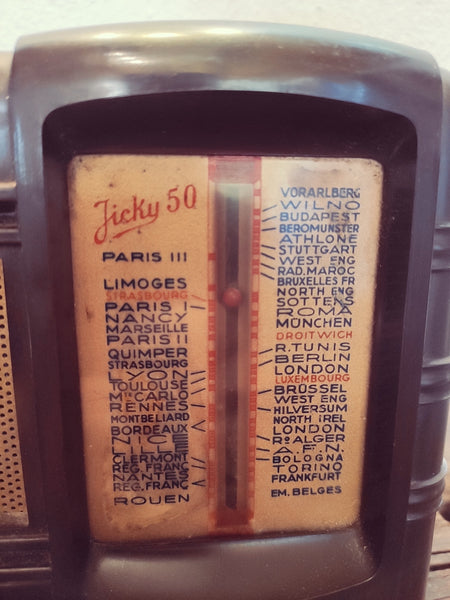 Jicky 50
PARIS III
LIMOGES
STRASBOURG
PARIS I
NANCY
MARSEILLE
PARIS II
QUIMPER
STRASBOURG
LYON
TOULOUSE
Mte CARLO
RENNES
MONTBELIARD
BORDEAUX
NICE
LILLE
CLERMONT
REG. FRANC
NANTES
REG. FRANC
ROUEN
VORARLBERG
WILNO
BUDAPEST
BEROMUNSTER
ATHLONE
STUTTGART
WEST ENG
RAD. MAROC
BRUXELLES FR
NORTH ENG
SOTTENS
ROMA
MÜNCHEN
DROITWICH
R. TUNIS
BERLIN
LONDON
LUXEMBOURG
BRÜSSEL
WEST ENG
HILVERSUM
NORTH IREL
LONDON
Ro ALGER
A.F.N.
BOLOGNA
TORINO
FRANKFURT
EM. BELGES